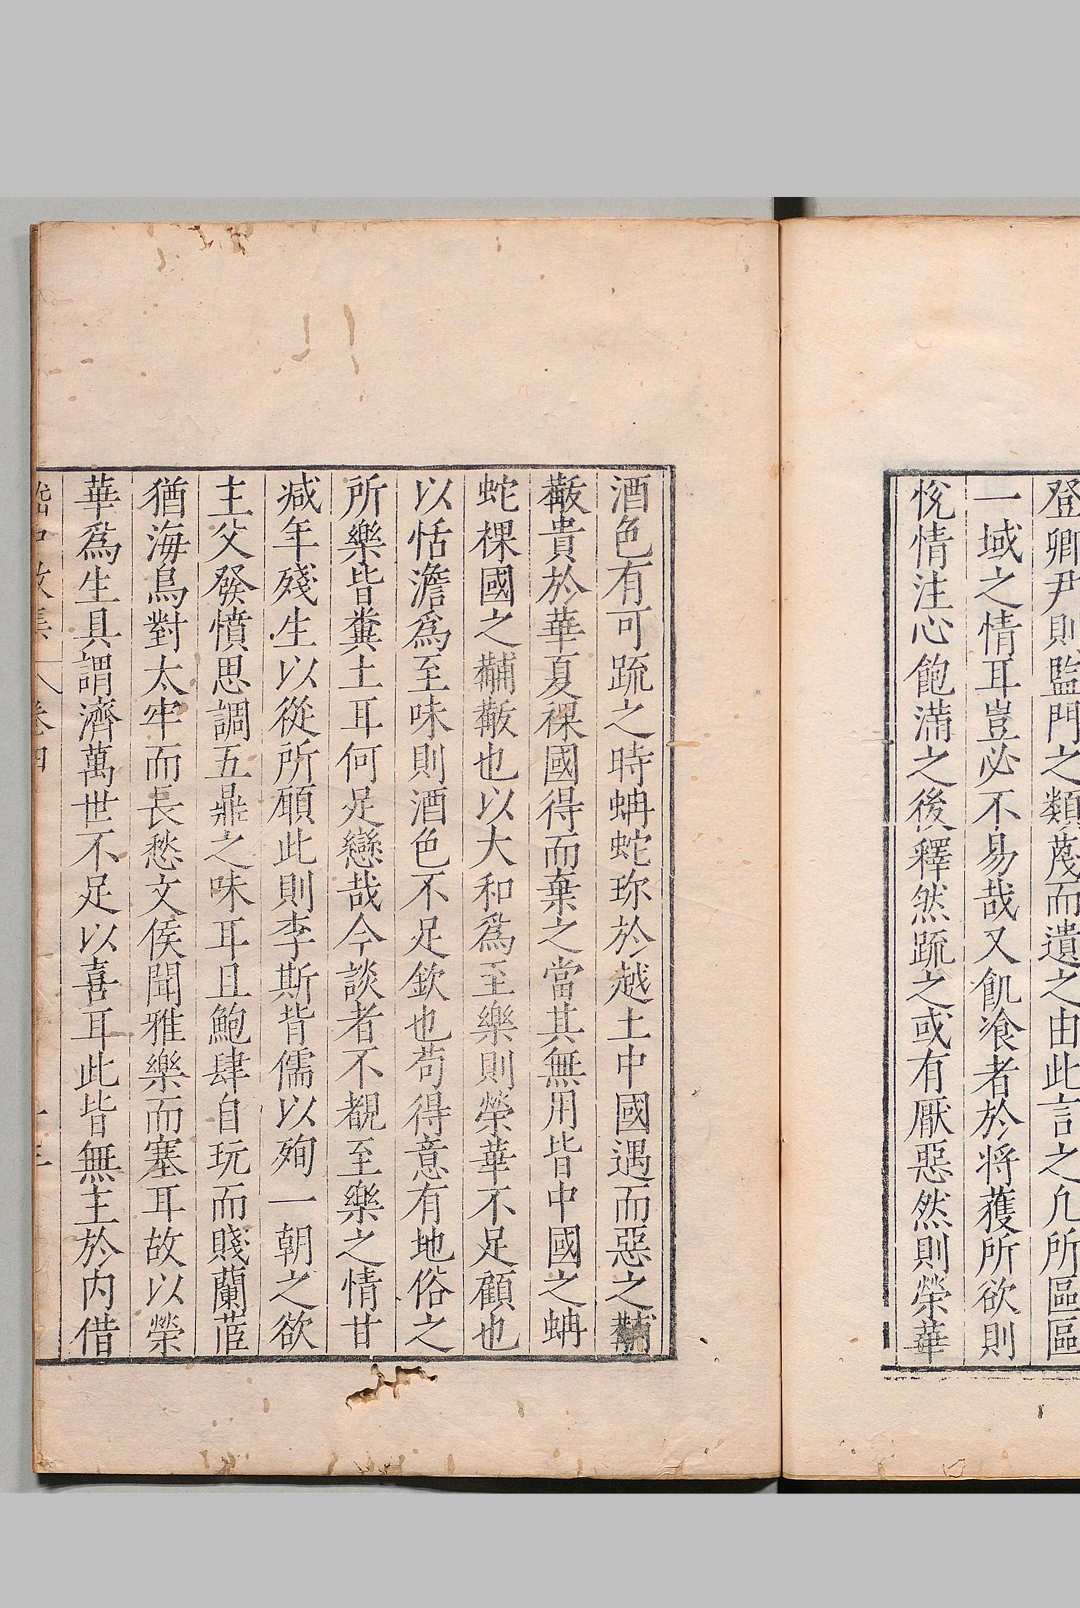 登卿尹則監門之類蔑而遺之由此言之凢所區區
一域之情耳豈必不易哉又飢飡者於將獲所欲則
悅情注心飽滿之後釋然疏之或有厭惡然則榮華
酒色有可疏之時蚺蛇珎於越土中國遇而惡之黼
黻貴於華夏裸國得而棄之當其無用皆中國之蚺
蛇裸國之黼黻也以大和爲至樂則榮華不足顧也
以恬澹爲至味則酒色不足欽也苟得意有地俗之
所樂皆糞土耳何足戀哉今談者不覩至樂之情甘
减年殘生以從所願此則李斯背儒以殉一朝之欲
主父發憤思調五鼎之味耳且鮑肆自玩而賤蘭茝
猶海鳥對太牢而長愁文侯聞雅樂而塞耳故以榮
華爲生具謂濟萬世不足以喜耳此皆無主於内借
嵇中散集 卷四 十三